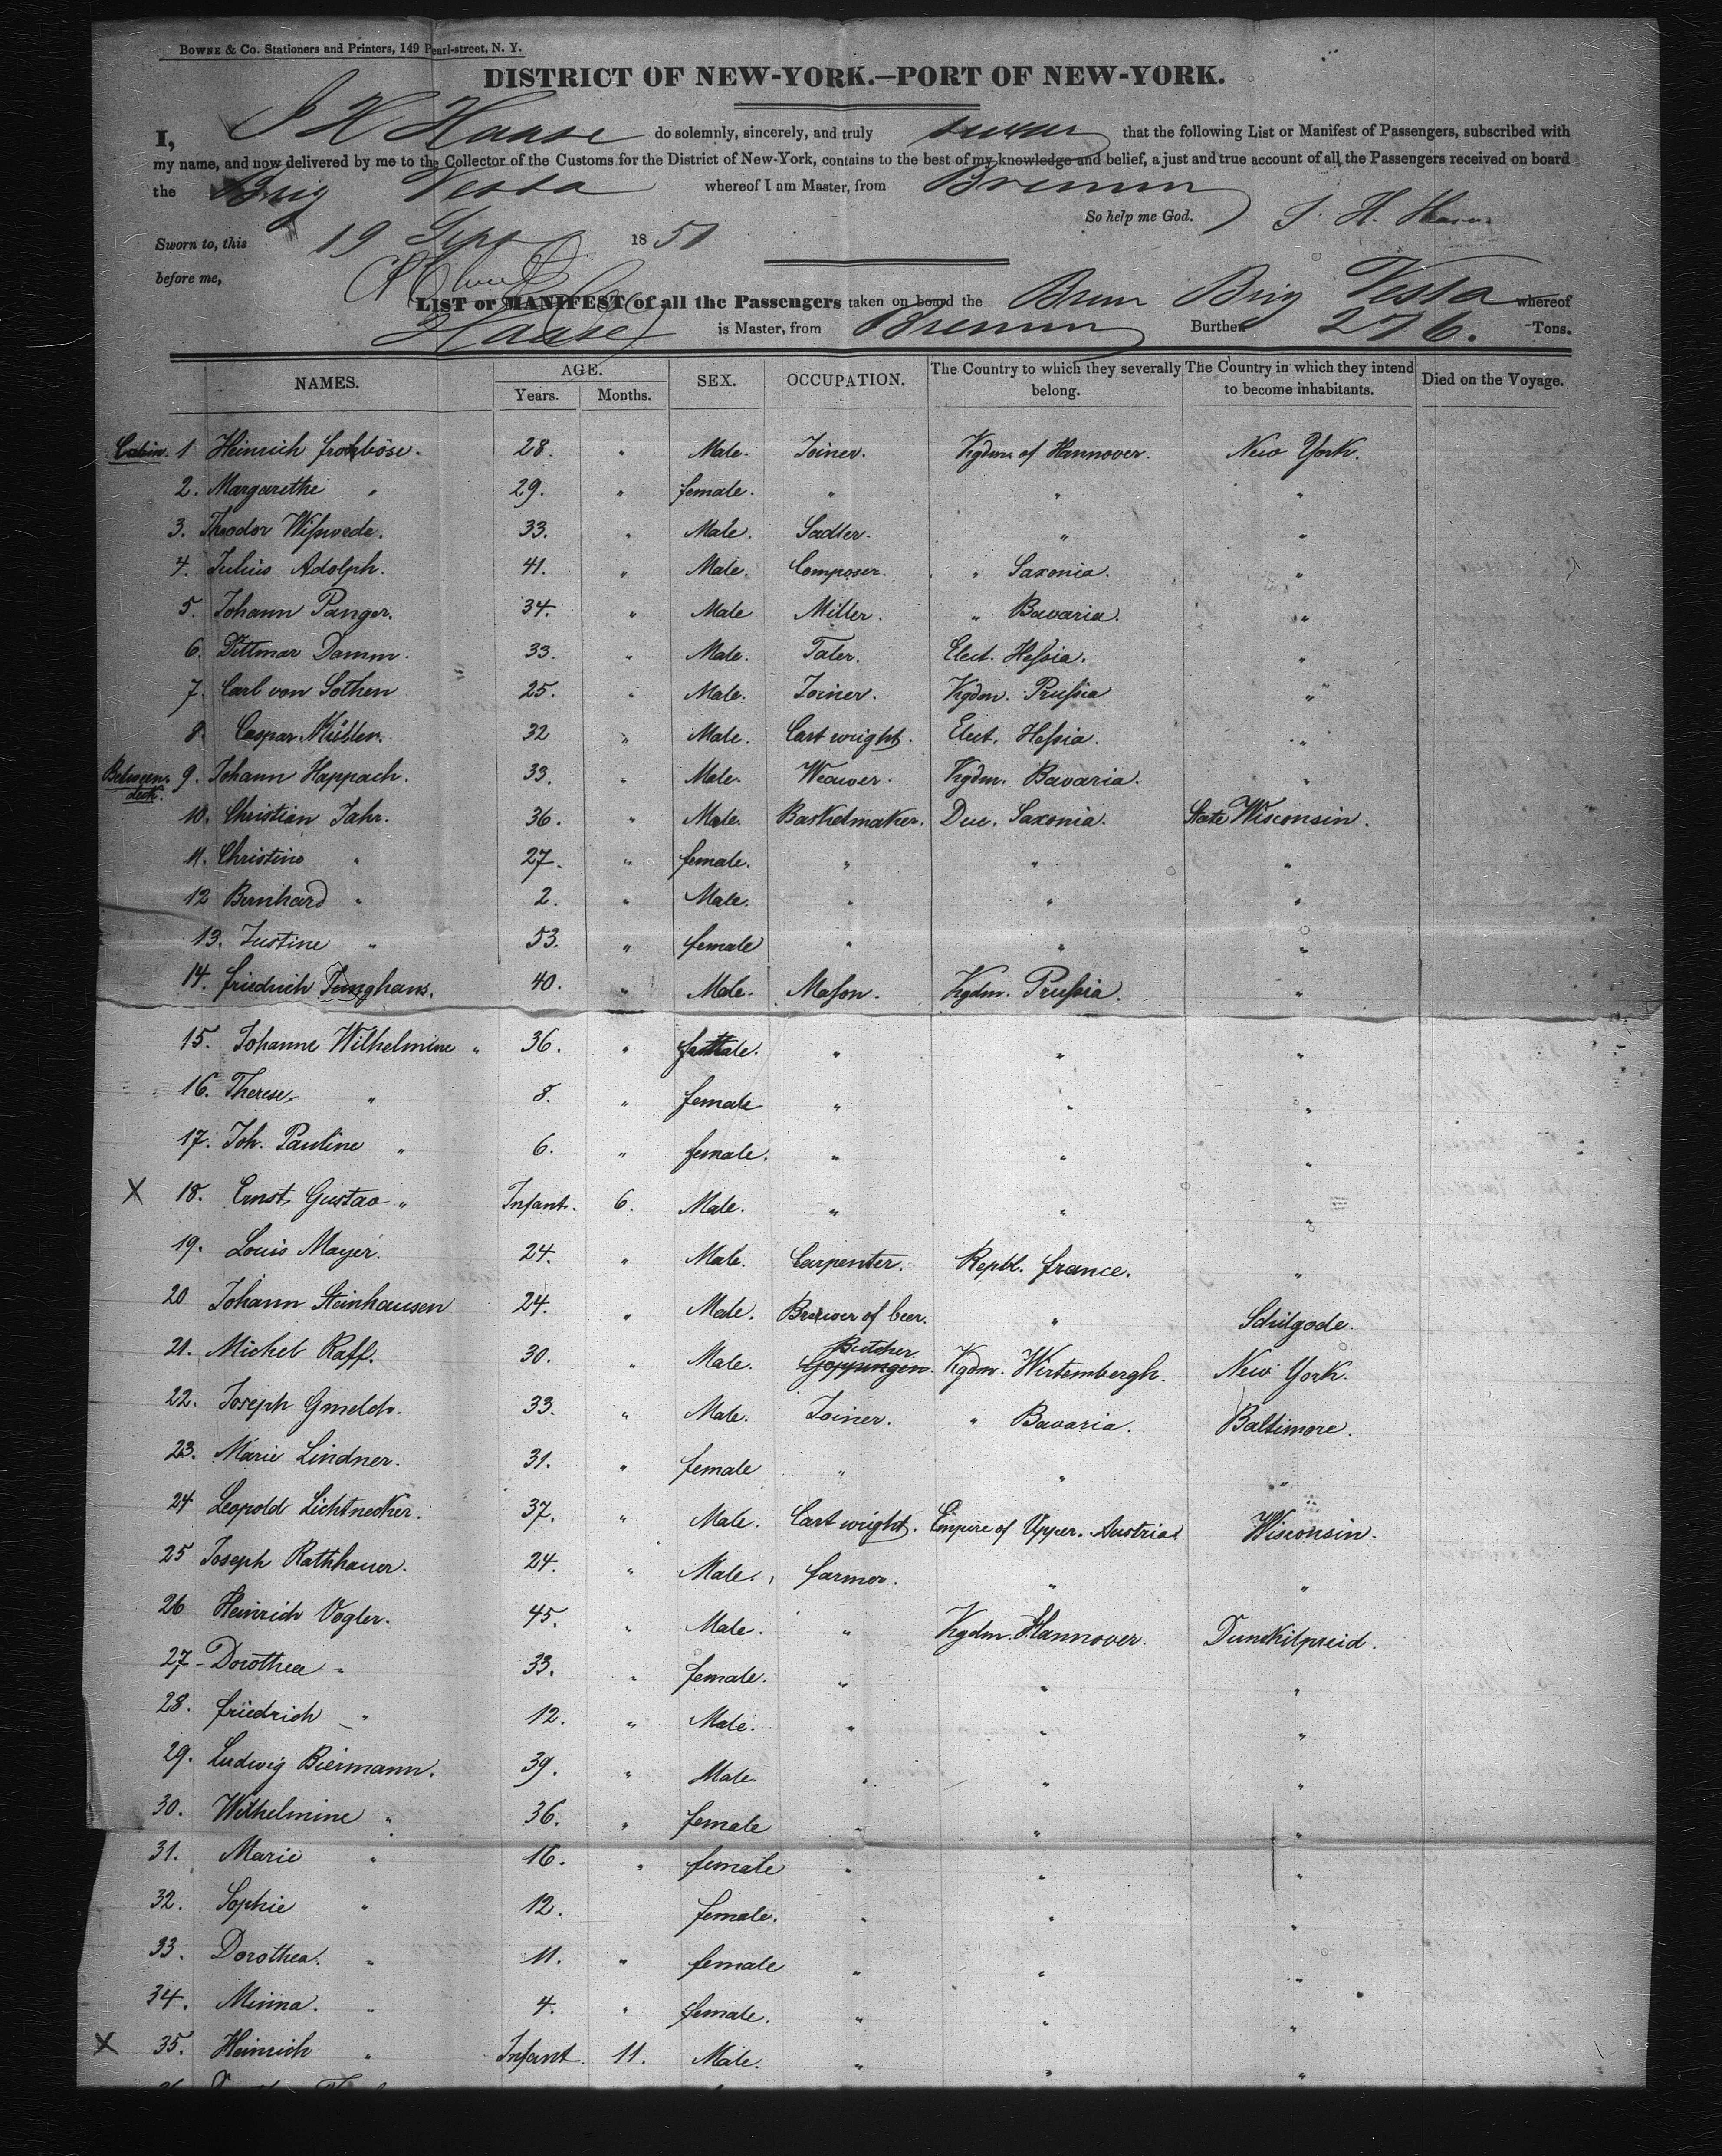 BOWNE & Co. Stationers and Printers, 149 Pearl-street, N. Y.
DISTRICT OF NEW-YORK.—PORT OF NEW-YORK.
I, J H Haase do solemnly, sincerely, and truly swear that the following List or Manifest of Passengers, subscribed with
my name, and now delivered by me to the Collector of the Customs for the District of New-York, contains to the best of my knowledge and belief, a just and true account of all the Passengers received on board
the Brig Vesta whereof I am Master, from Bremen
So help me God. J. H. Haase
Sworn to, this 19 Sept 1851
before me,
LIST or MANIFEST of all the Passengers taken on board the Brem Brig Vesta whereof
Haase is Master, from Bremen Burthen 276. Tons.
NAMES. AGE. Years. Months. SEX. OCCUPATION. The Country to which they severally belong. The Country in which they intend to become inhabitants. Died on the Voyage.
Cabin. 1 Heinrich 28. " Male. Joiner. Kgdm of Hannover. New York.
2. Margarethe " 29. " female. " " "
3. Theodor Wißwede. 33. " Male. Sadler. " "
4. Julius Adolph. 41. " Male. Composer. " Saxonia. "
5. Johann Panger. 34. " Male Miller. " Bavaria. "
6. Dittmar Damm. 33. " Male. Taler. Elect. Heßia. "
7. Carl von Sothen 25. " Male. Joiner. Kgdm. Prußia "
8. Caspar Müller. 32 " Male. Cart wright. Elect. Heßia. "
Between deck. 9. Johann Happach. 33. " Male. Weawer. Kgdm. Bavaria. "
10. Christian Jahr. 36. " Male. Basketmaker. Duc. Saxonia. State Wisconsin.
11. Christine " 27. " female. " " "
12 Bernhard " 2. " Male. " " "
13. Justine " 53. " female " " "
14. friedrich Junghans. 40. " Male. Mason. Kgdm. Prußia. "
15. Johanne Wilhelmine " 36. " female. " " "
16. Therese " 8. " female " " "
17. Joh. Pauline " 6. " female. " " "
X 18. Ernst Gustav " Infant. 6. Male. " " "
19. Louis Mayer. 24. " Male. Carpenter. Repbl. france. "
20 Johann Steinhausen 24. " Male. Brewer of beer. " Schilgode.
21. Michel Raff. 30. " Male. Butcher. Kgdm. Wirtembergh. New York.
22. Joseph 33. " Male. Joiner. " Bavaria. Baltimore.
23. Marie Lindner. 31. " female " " "
24 Leopold Lichtnecker. 37. " Male. Cart wright. Empire of Upper. Austria. Wisconsin.
25 Joseph Rathhauer. 24. " Male. farmer. " "
26 Heinrich Vogler. 45. " Male. " Kgdm. Hannover. Dunckilpreid.
27 Dorothea " 33. " female. " " "
28. friedrich " 12. " Male. " " "
29. Ludwig Biermann. 39. " Male " " "
30. Wilhelmine " 36. " female " " "
31. Marie " 16. " female " " "
32. Sophie " 12. female. " " "
33. Dorothea. " 11. " female " " "
34. Minna. " 4. " female. " " "
X 35. Heinrich " Infant. 11. Male. " " "